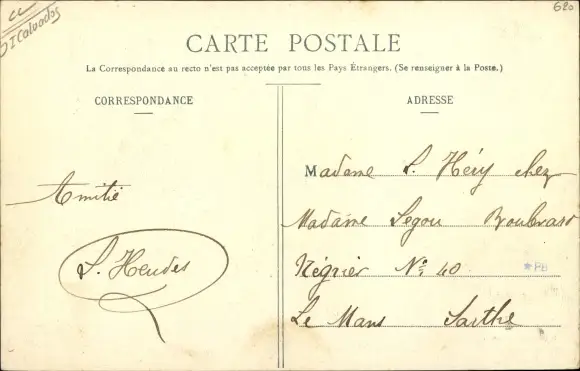 CC
DI Calvados
620
CARTE POSTALE
La Correspondance au recto n'est pas acceptée par tous les Pays Étrangers. (Se renseigner à la Poste.)
CORRESPONDANCE
ADRESSE
Amitié
S. Heudes
Madame S. Héry chez
Madame Segou Boulevard
Négrier No 40
★PB
Le Mans Sarthe